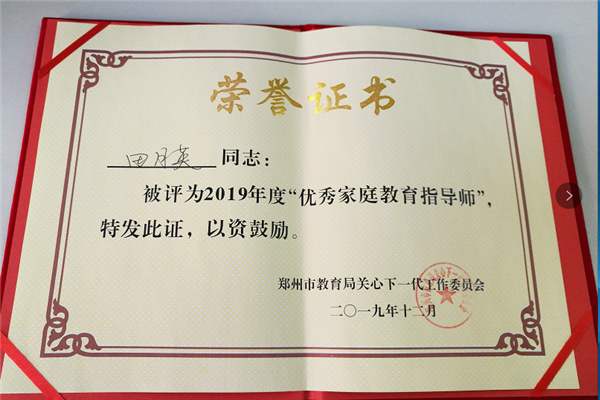 荣誉证书
田月英 同志：
被评为2019年度“优秀家庭教育指导师”，
特发此证，以资鼓励。
郑州市教育局关心下一代工作委员会
二〇一九年十二月